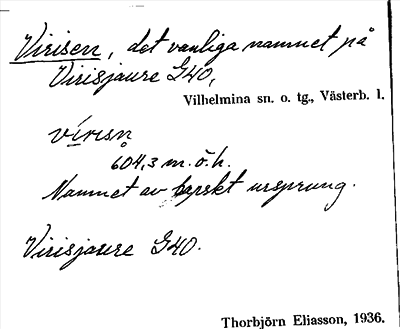 Virisen, det vanliga namnet på
Virisjaure G40,
Vilhelmina sn. o. tg., Västerb. l.
vírisn̥
604,3 m. ö. h.
Namnet av lapskt ursprung.
Virisjaure G40.
Thorbjörn Eliasson, 1936.